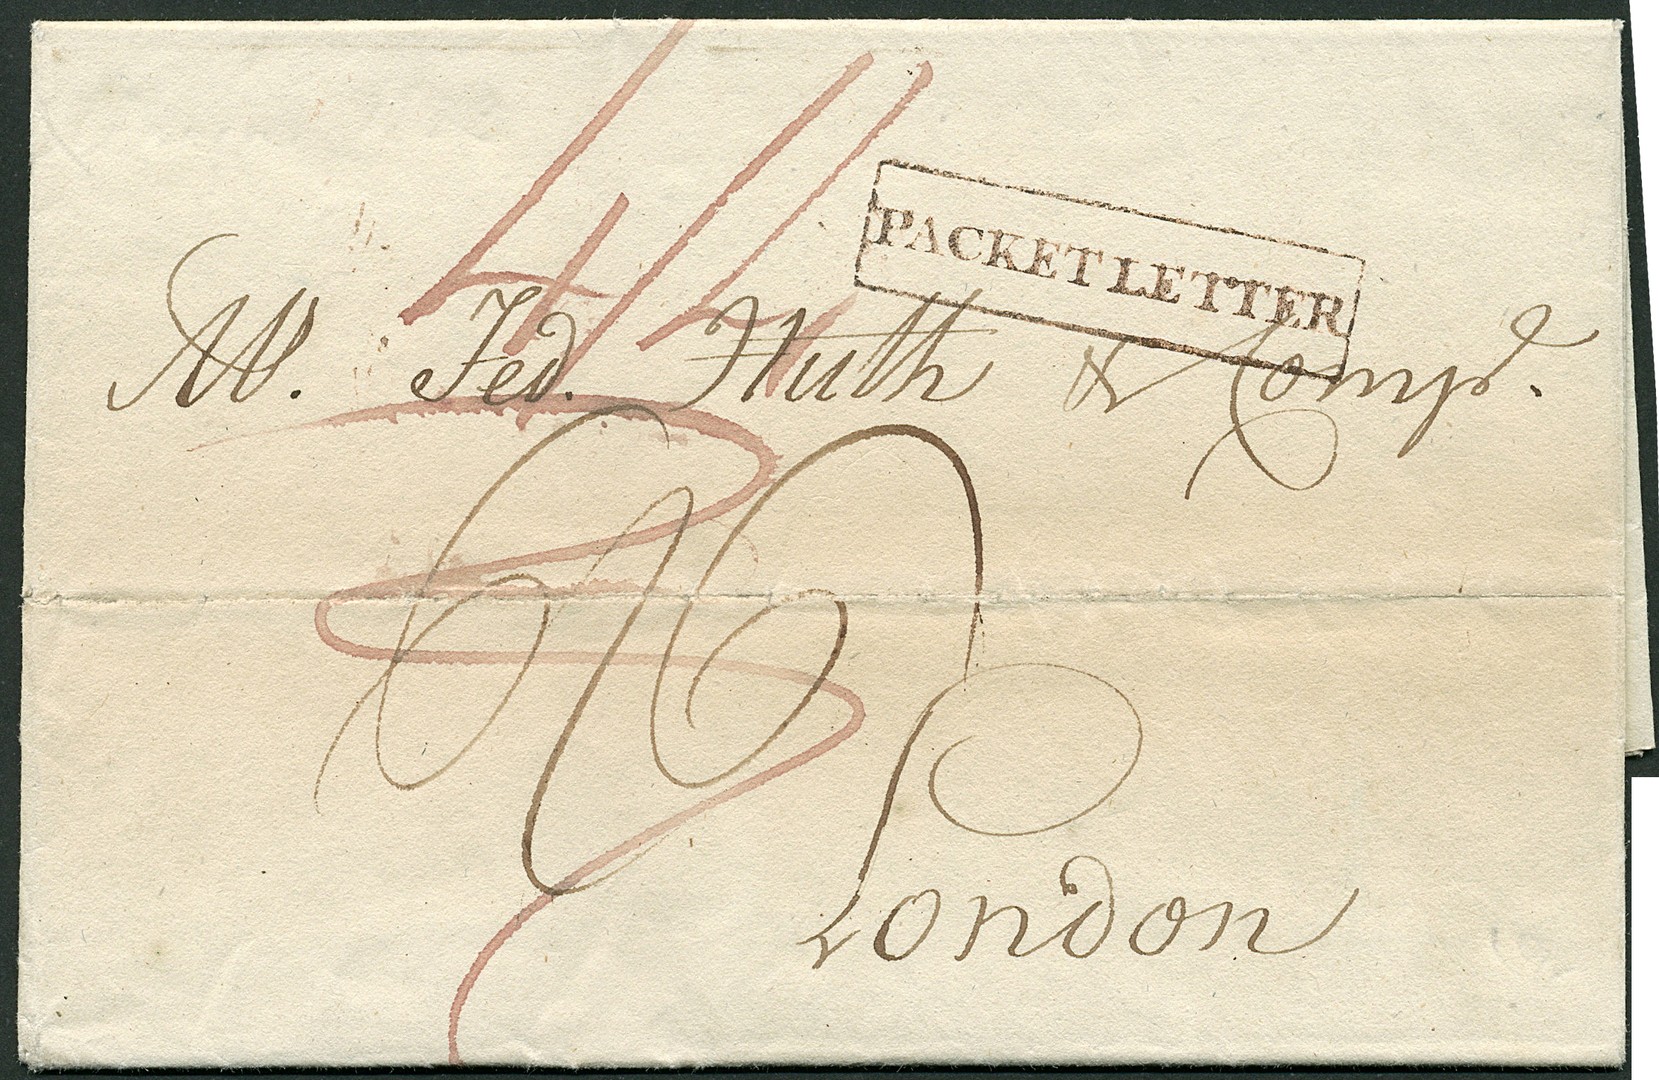 PACKET LETTER
Fed. Huth & Comp.
London